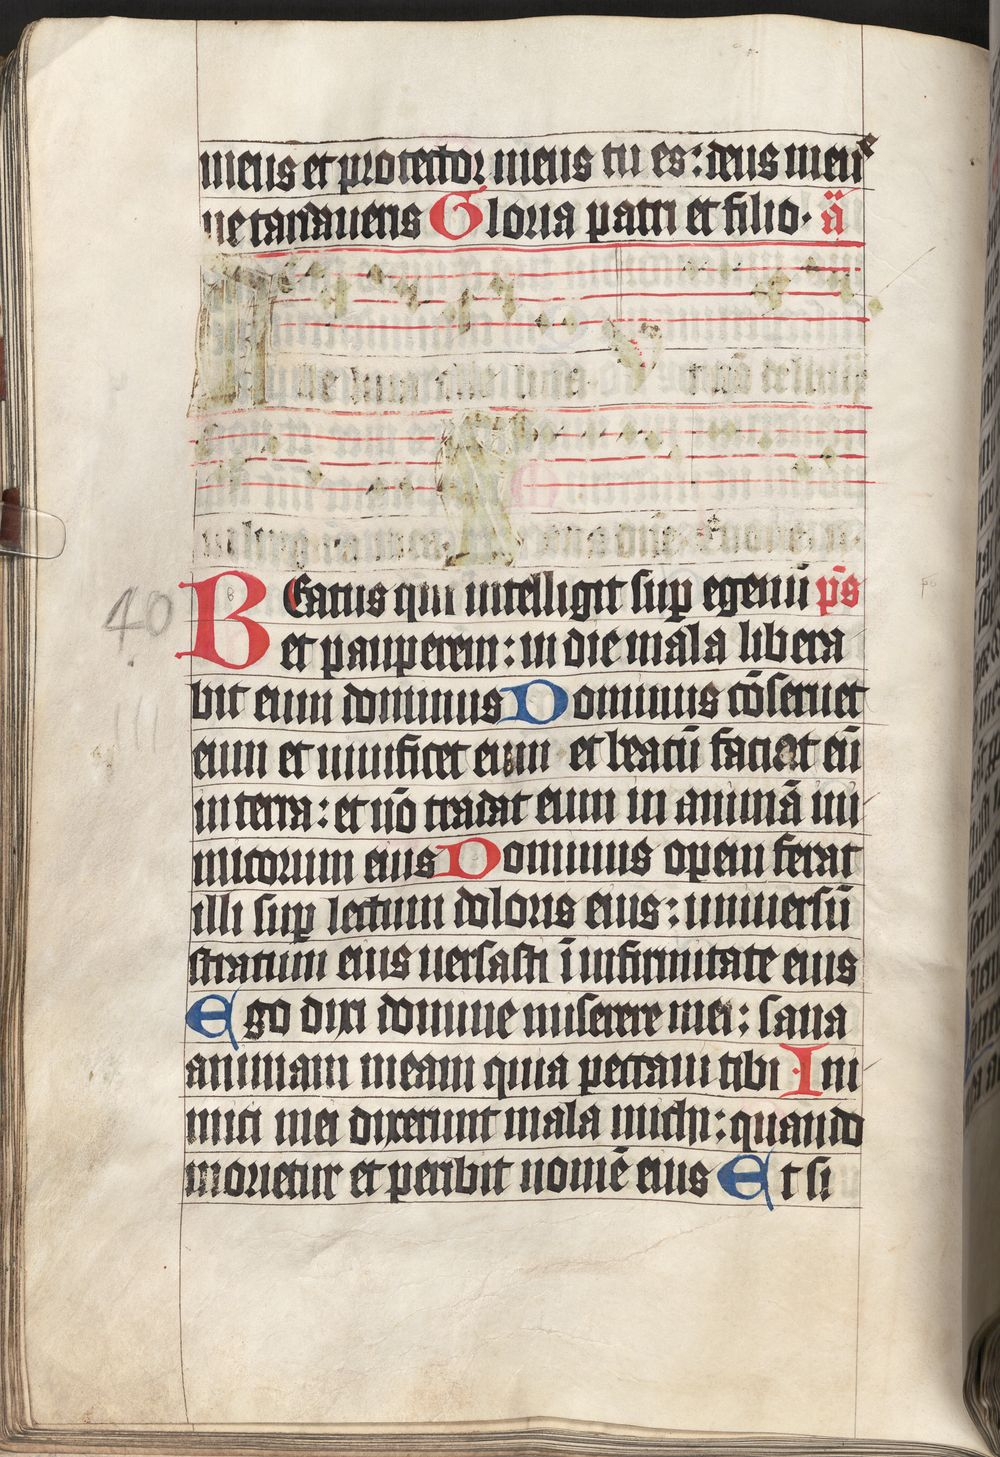 meus et protector meus tu es: deus meus
ne tardaueris Gloria patri et filio. ā
BEatus qui intelligit sup egenū p̄s
et pauperem: in die mala libera
bit eum dominus Dominus cōseruet
eum et uiuificet eum et beatū faciat eū
in terra: et nō tradat eum in animā ini
micorum eius Dominus opem ferat
illi sup lectum doloris eius: uniuersū
stratum eius uersasti ī infirmitate eius
Ego dixi domine miserere mei: sana
animam meam quia peccaui tibi Ini
mici mei dixerunt mala michi: quando
morietur et peribit nomē eius Et si
40